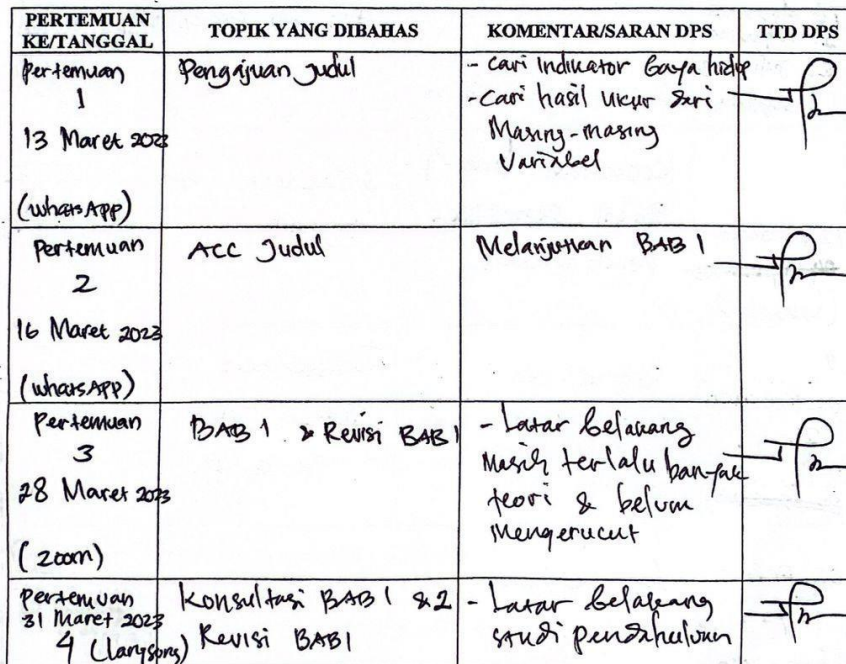 PERTEMUAN KE/TANGGAL
TOPIK YANG DIBAHAS
KOMENTAR/SARAN DPS
TTD DPS
Pertemuan
1
13 Maret 2023
(whatsApp)
Pengajuan Judul
- Cari Indikator Gaya hidup
- Cari hasil ukur dari
Masing-masing
Variabel
Pertemuan
2
16 Maret 2023
(whatsApp)
ACC Judul
Melanjutkan BAB 1
Pertemuan
3
28 Maret 2023
(zoom)
BAB 1 & Revisi BAB 1
- Latar belakang
Masih terlalu banyak
teori & belum
Mengerucut
Pertemuan
31 Maret 2023
4 (langsung)
Konsultasi BAB 1 & 2
Revisi BAB 1
- Latar belakang
studi pendahuluan